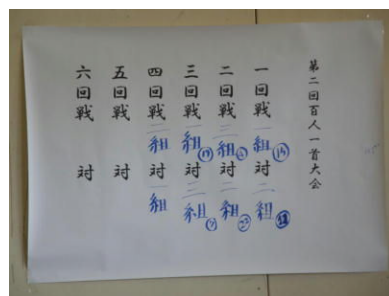 第二回百人一首大会
一回戦 一組 対 二組
二回戦 三組 対 二組
三回戦 一組 対 三組
四回戦 三組 対 一組
五回戦 対
六回戦 対